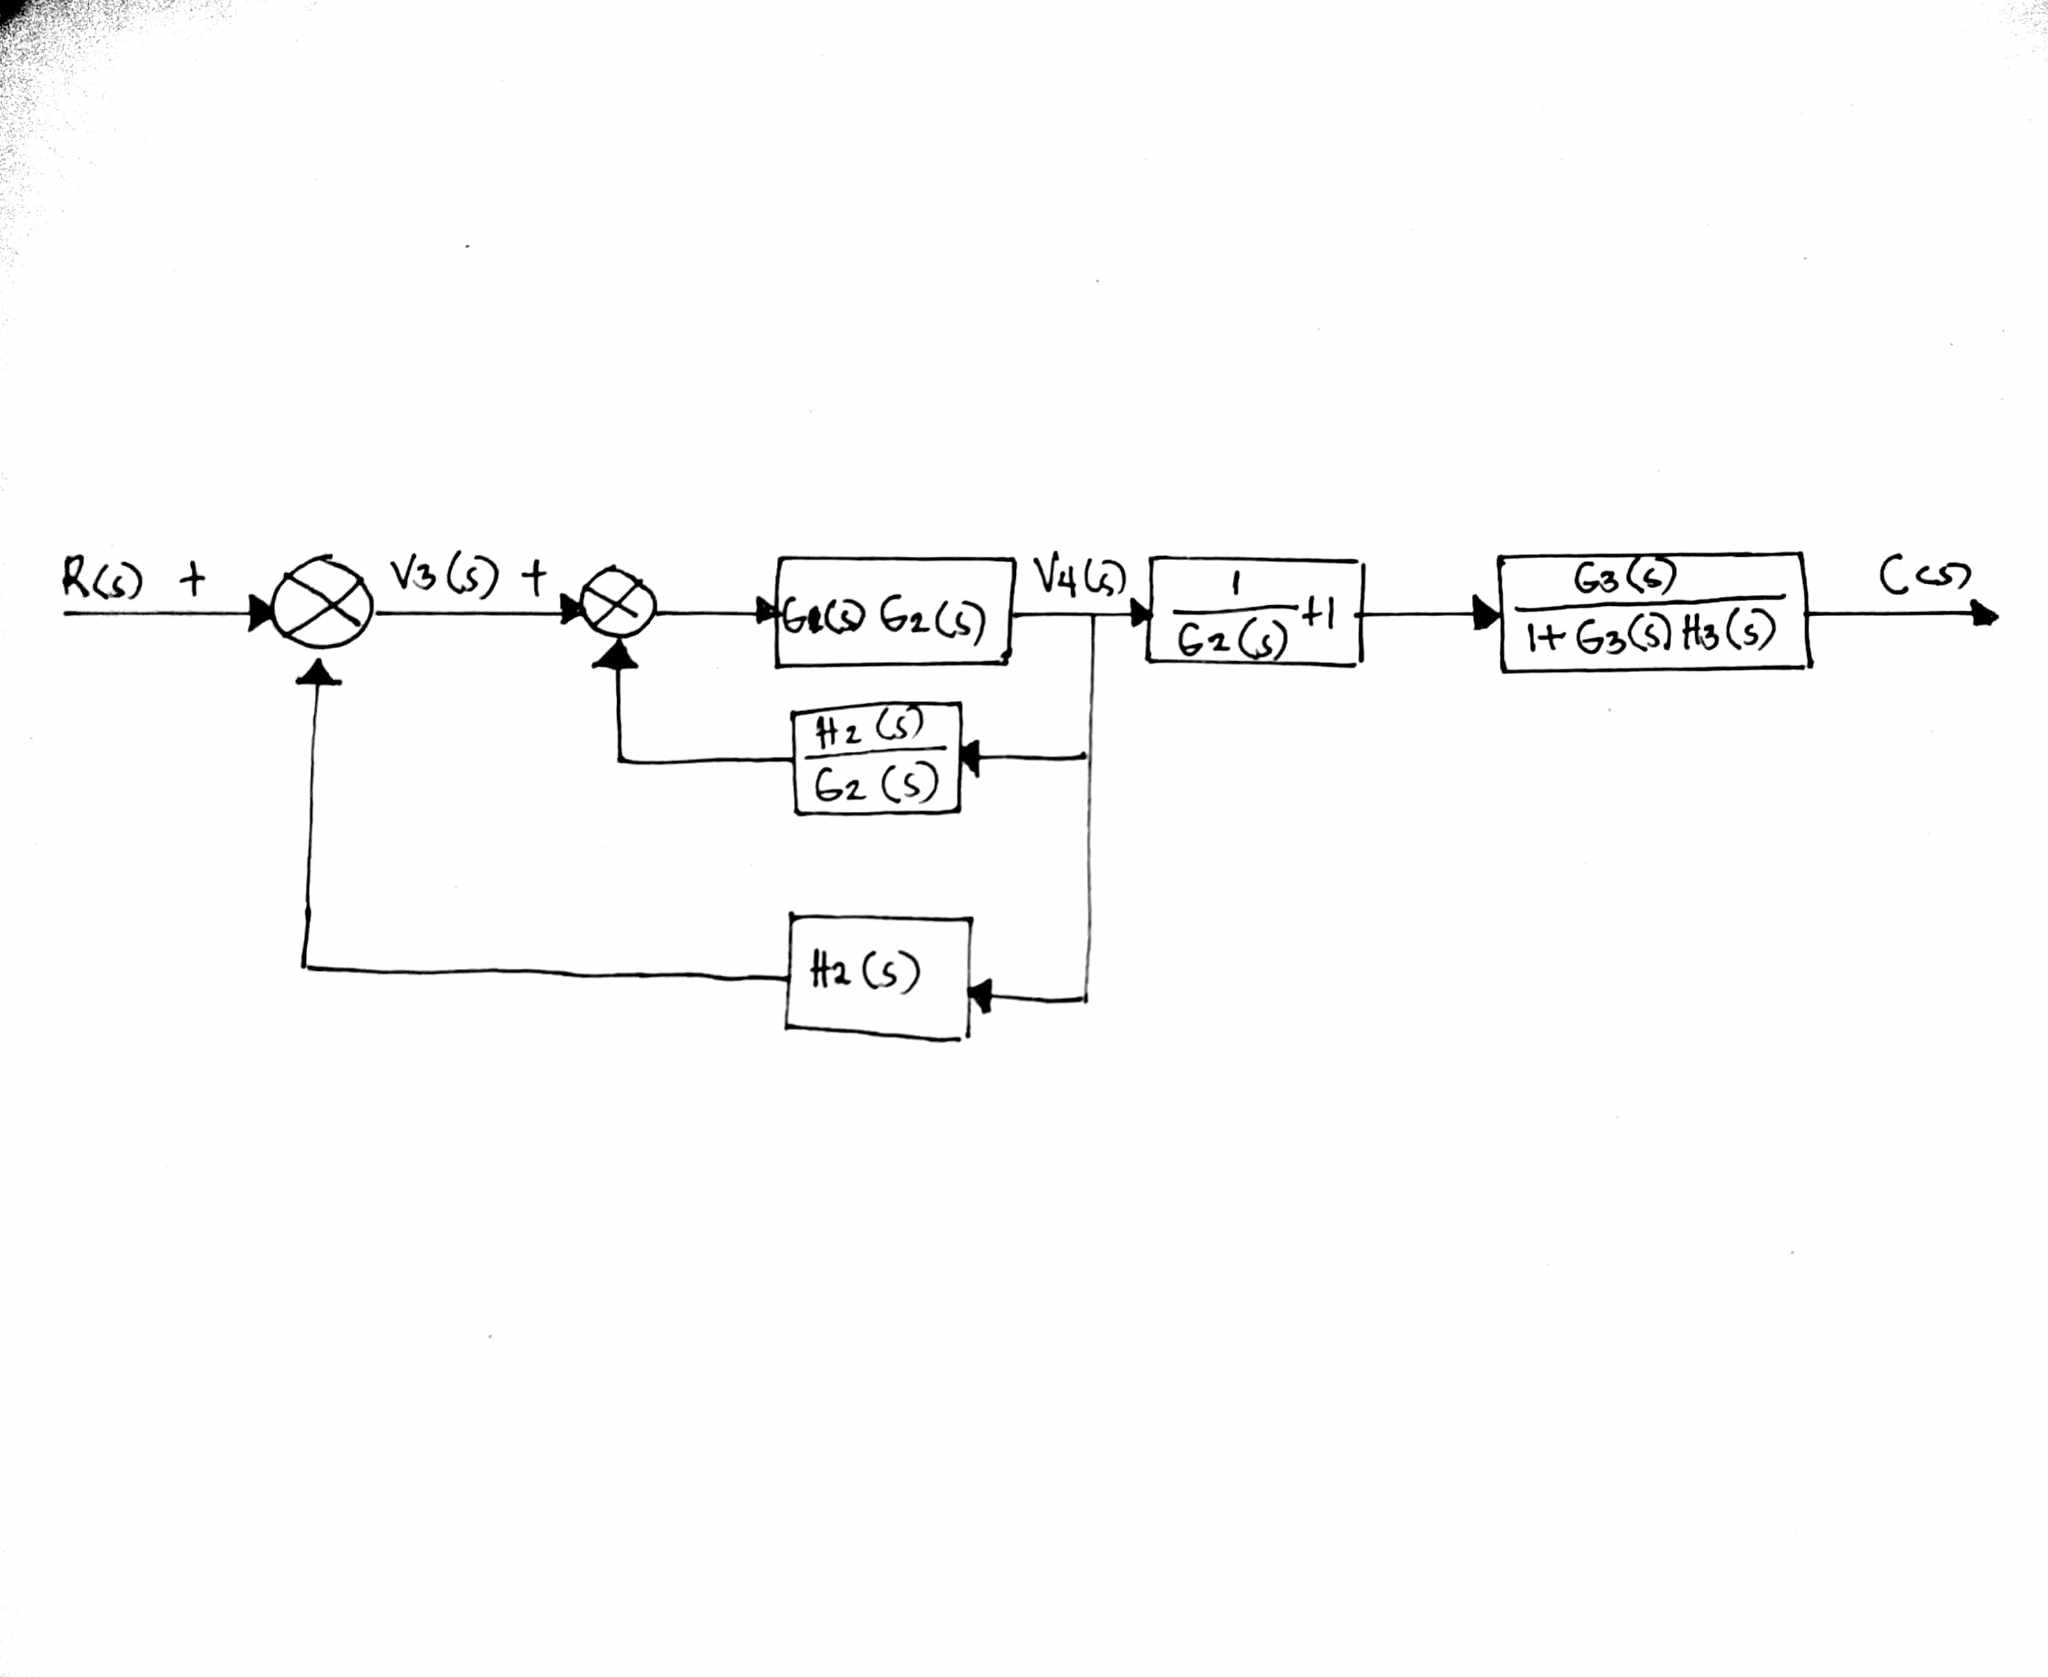 R(s) +
V3(s) +
G1(s) G2(s)
V4(s)
1
G2(s) +1
G3(s)
1+ G3(s) H3(s)
C(s)
H2(s)
G2(s)
H2(s)